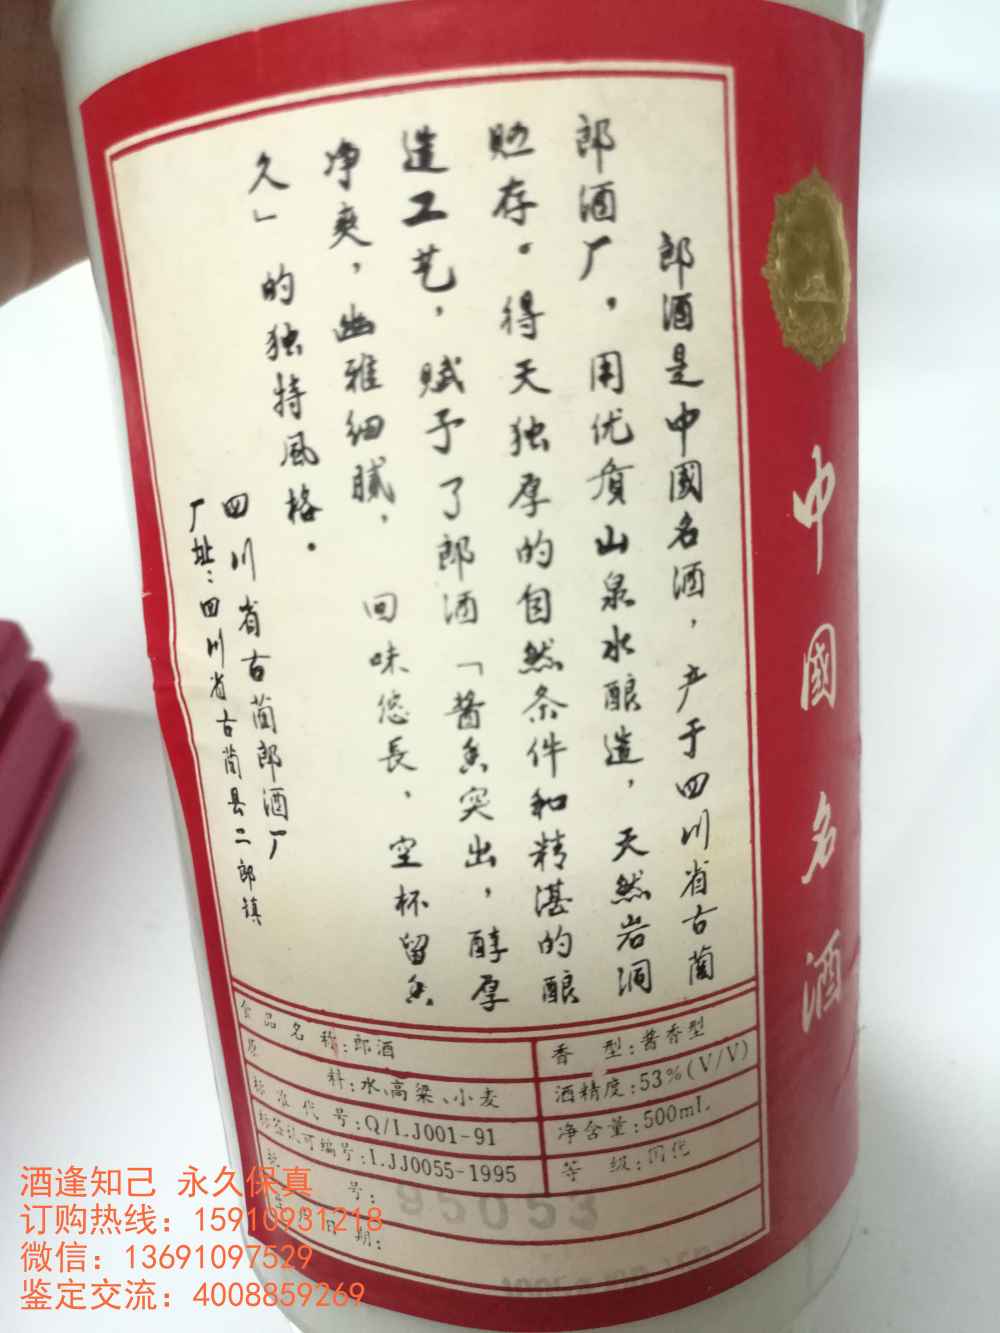 郎酒是中國名酒，产于四川省古蔺
郎酒厂。用优质山泉水酿造，天然岩洞
贮存。得天独厚的自然条件和精湛的酿
造工艺，赋予了郎酒「酱香突出，醇厚
净爽，幽雅细腻，回味悠長，空杯留香
久」的独特風格。
四川省古蔺郎酒厂
厂址：四川省古蔺县二郎镇
中國名酒
食品名称：郎酒
香型：酱香型
原料：水、高粱、小麦
酒精度：53%(V/V)
标准代号：Q/LJ001-91
净含量：500mL
标签认可编号：LJJ0055-1995
等级：优
号：95053
日期：
酒逢知己 永久保真
订购热线：15910931218
微信：13691097529
鉴定交流：4008859269